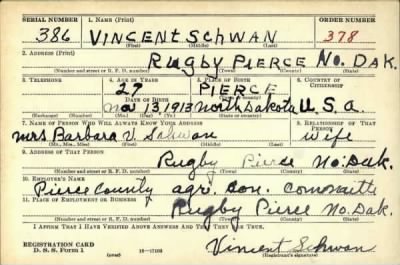 SERIAL NUMBER 1. NAME (Print) ORDER NUMBER
386 VINCENT SCHWAN 378
(First) (Middle) (Last)
2. ADDRESS (Print)
RUGBY PIERCE NO. DAK.
(Number and street or R. F. D. number) (Town) (County) (State)
3. TELEPHONE 4. AGE IN YEARS 5. PLACE OF BIRTH 6. COUNTRY OF CITIZENSHIP
27 PIERCE
DATE OF BIRTH
Nov 13 1913 North Dakota U. S. A
7. NAME OF PERSON WHO WILL ALWAYS KNOW YOUR ADDRESS 8. RELATIONSHIP OF THAT PERSON
Mrs Barbara V. Schwan Wife
(Mr., Mrs., Miss) (First) (Middle) (Last)
9. ADDRESS OF THAT PERSON
Rugby Pierce No. Dak.
(Number and street or R. F. D. number) (Town) (County) (State)
10. EMPLOYER'S NAME
Pierce County agr. Con. Committe
11. PLACE OF EMPLOYMENT OR BUSINESS
Rugby Pierce No. Dak.
(Number and street or R. F. D. number) (Town) (County) (State)
I AFFIRM THAT I HAVE VERIFIED ABOVE ANSWERS AND THAT THEY ARE TRUE.
REGISTRATION CARD
D. S. S. Form 1
Vincent Schwan
(Registrant's signature)